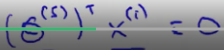 (θ^{(5)})^T x^{(i)} = 0